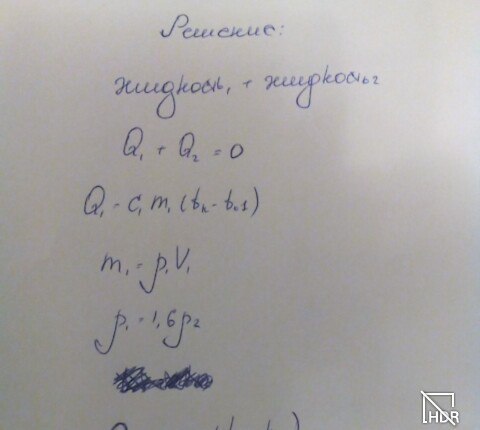 Решение:
жидкость₁ + жидкость₂
Q₁ + Q₂ = 0
Q₁ = c₁ m₁ (tк - tн1)
m₁ = ρ₁V₁
ρ₁ = 1,6ρ₂
HDR